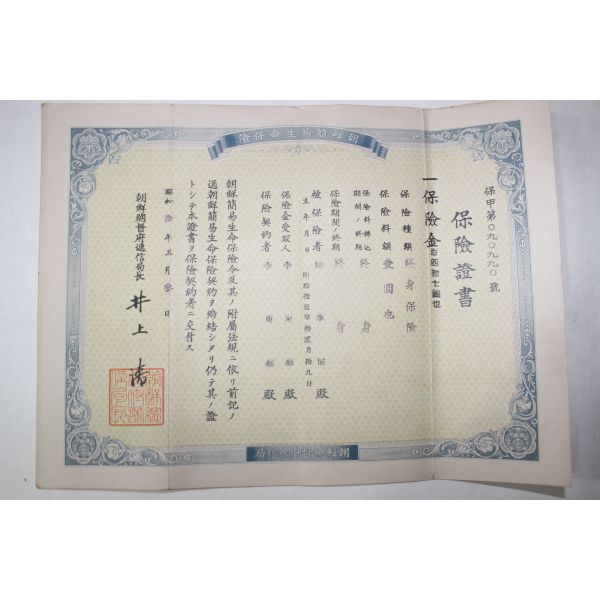 朝鮮簡易生命保險
保甲第〇九〇九九〇號
保險證書
一保險金四拾七圓也
保險種類 終身保險
保險料額 壹圓也
保險料拂込期間ノ終期 終身
保險期間ノ終期 終身
被保險者 殿
生年月日 明治拾年拾貳月拾九日
保險金受取人 李東 殿
保險契約者 李東 殿
朝鮮簡易生命保險令及其ノ附屬法規ニ依リ前記ノ
通朝鮮簡易生命保險契約ヲ締結シタリ仍テ其ノ證
トシテ本證書ヲ保險契約者ニ交付ス
昭和拾年五月日
朝鮮總督府遞信局長 井上清
朝鮮總督府遞信局